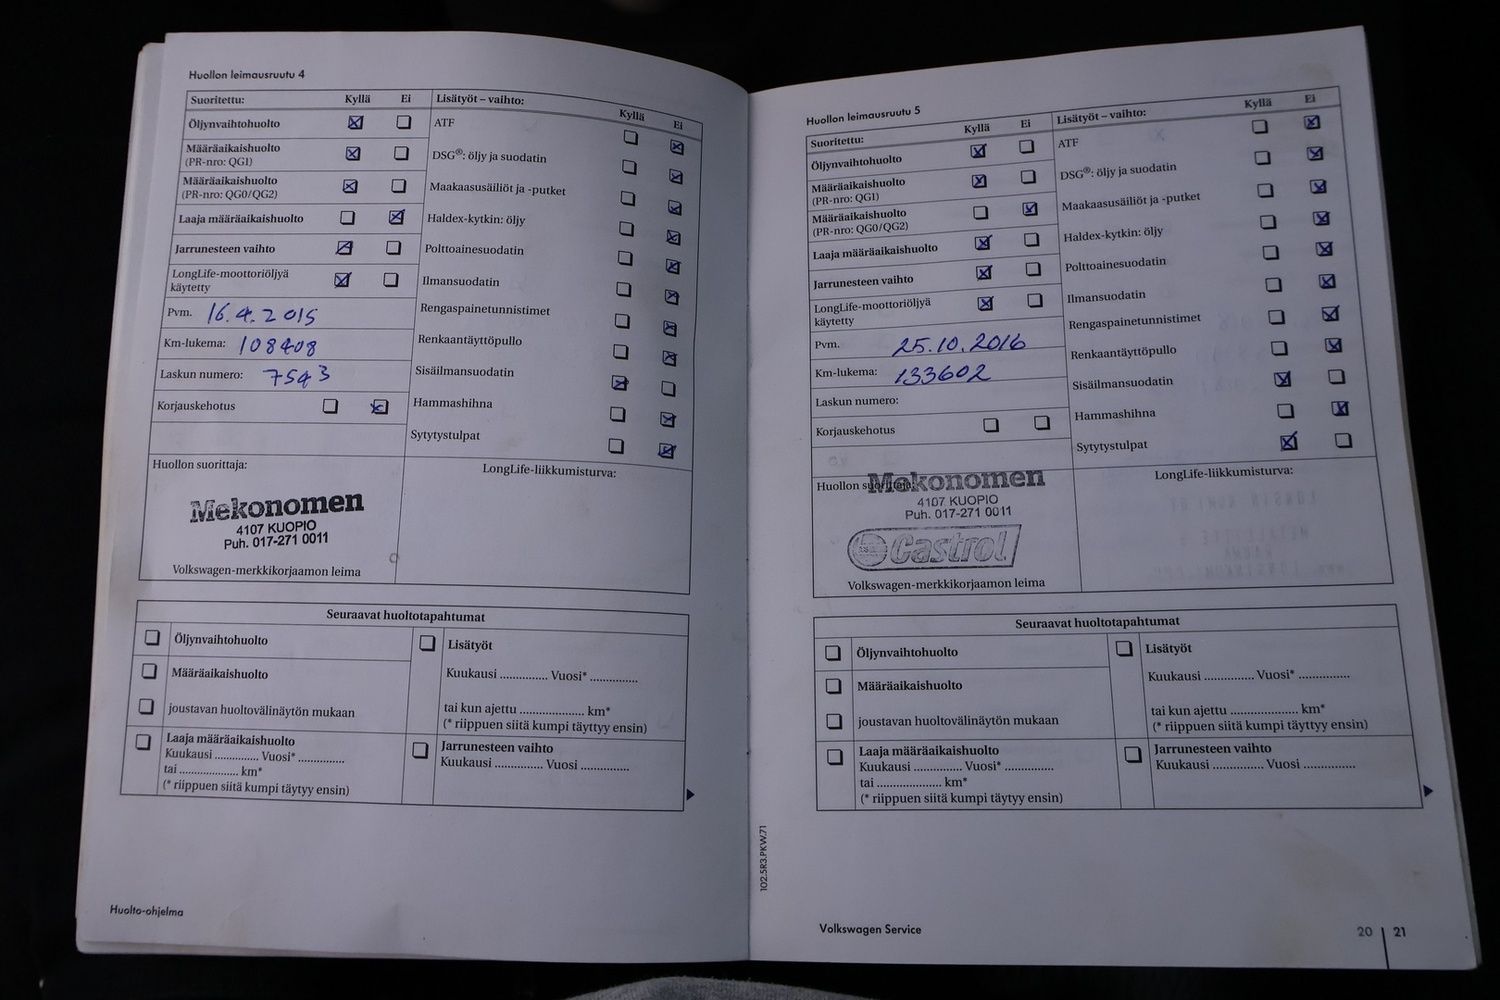 Huollon leimausruutu 4
Suoritettu: Kyllä Ei
Öljynvaihtohuolto
Määräaikaishuolto
(PR-nro: QG1)
Määräaikaishuolto
(PR-nro: QG0/QG2)
Laaja määräaikaishuolto
Jarrunesteen vaihto
LongLife-moottoriöljyä
käytetty
Pvm. 16.4.2015
Km-lukema: 108408
Laskun numero: 7543
Korjauskehotus
Lisätyöt – vaihto:
Kyllä Ei
ATF
DSG®: öljy ja suodatin
Maakaasusäiliöt ja -putket
Haldex-kytkin: öljy
Polttoainesuodatin
Ilmansuodatin
Rengaspainetunnistimet
Renkaantäyttöpullo
Sisäilmansuodatin
Hammashihna
Sytytystulpat
Huollon suorittaja:
Mekonomen
4107 KUOPIO
Puh. 017-271 0011
Volkswagen-merkkikorjaamon leima
LongLife-liikkumisturva:
Seuraavat huoltotapahtumat
Öljynvaihtohuolto
Määräaikaishuolto
joustavan huoltovälinäytön mukaan
Laaja määräaikaishuolto
Kuukausi .............. Vuosi* ..............
tai .................... km*
(* riippuen siitä kumpi täytyy ensin)
Lisätyöt
Kuukausi ............... Vuosi* ...............
tai kun ajettu .................... km*
(* riippuen siitä kumpi täyttyy ensin)
Jarrunesteen vaihto
Kuukausi ............... Vuosi ...............
Huolto-ohjelma
Huollon leimausruutu 5
Suoritettu: Kyllä Ei
Öljynvaihtohuolto
Määräaikaishuolto
(PR-nro: QG1)
Määräaikaishuolto
(PR-nro: QG0/QG2)
Laaja määräaikaishuolto
Jarrunesteen vaihto
LongLife-moottoriöljyä
käytetty
Pvm. 25.10.2016
Km-lukema: 133602
Laskun numero:
Korjauskehotus
Lisätyöt – vaihto:
Kyllä Ei
ATF
DSG®: öljy ja suodatin
Maakaasusäiliöt ja -putket
Haldex-kytkin: öljy
Polttoainesuodatin
Ilmansuodatin
Rengaspainetunnistimet
Renkaantäyttöpullo
Sisäilmansuodatin
Hammashihna
Sytytystulpat
Huollon suorittaja:
Mekonomen
4107 KUOPIO
Puh. 017-271 0011
Castrol
Volkswagen-merkkikorjaamon leima
LongLife-liikkumisturva:
Seuraavat huoltotapahtumat
Öljynvaihtohuolto
Määräaikaishuolto
joustavan huoltovälinäytön mukaan
Laaja määräaikaishuolto
Kuukausi ............... Vuosi* ...............
tai .................... km*
(* riippuen siitä kumpi täytyy ensin)
Lisätyöt
Kuukausi ............... Vuosi* ...............
tai kun ajettu .................... km*
(* riippuen siitä kumpi täyttyy ensin)
Jarrunesteen vaihto
Kuukausi ............... Vuosi ...............
102.5R3.PKW.71
Volkswagen Service
20 21